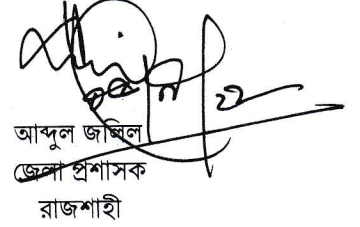 আব্দুল জলিল
জেলা প্রশাসক
রাজশাহী